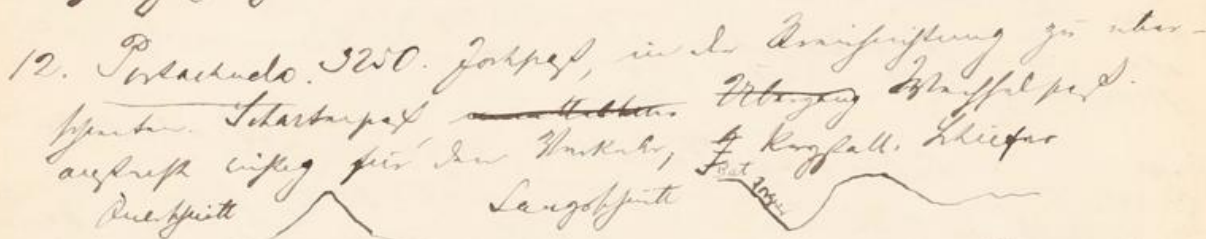 12. Portachuelo. 3250. Jochpaß, in der Streichrichtung zu über-
schreiten. Schartenpaß, Übergang Wechselpaß.
äußerst wichtig für den Verkehr, Krystall. Schiefer
Querschnitt Längsschnitt